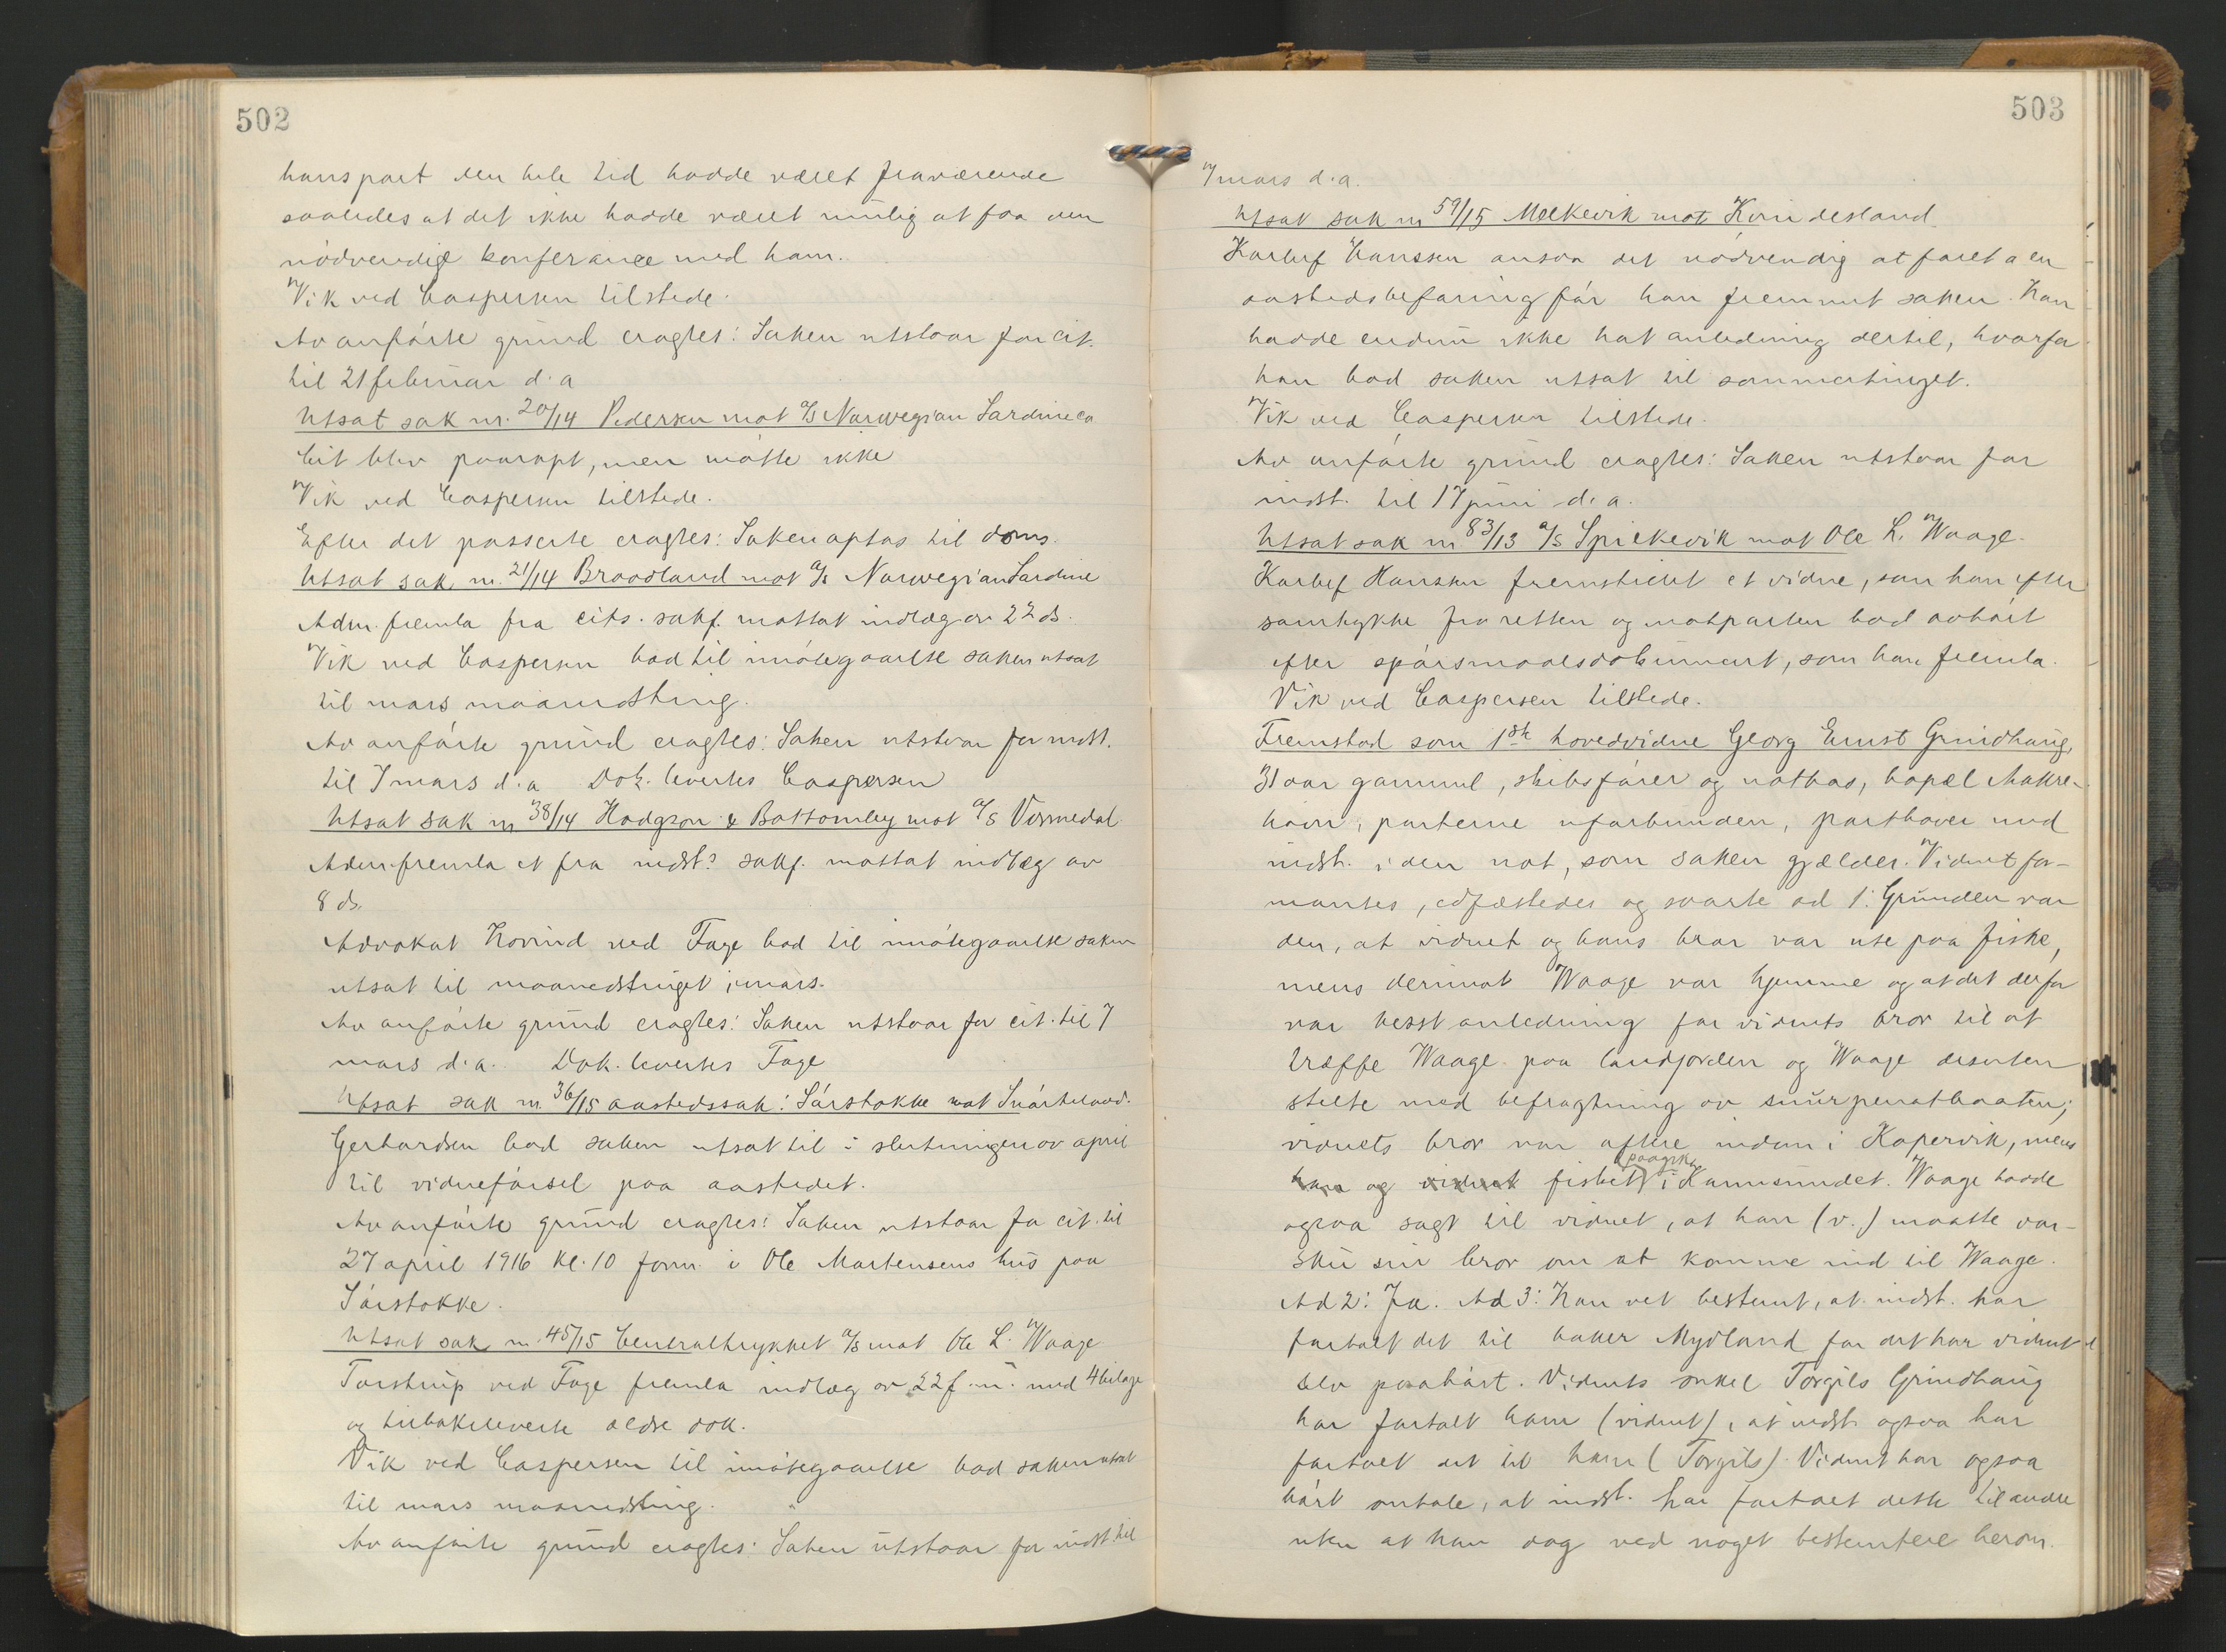 502
hans part den hele tid hadde været fraværende
saaledes at det ikke hadde været mulig at faa den
nödvendige konferance med ham.
Vik ved Caspersen tilstede.
Av anförte grund eragtes: Saken utstaar for cit.
til 21 februar d.a
Utsat sak nr. 20/14 Pedersen mot A/S Norwegian Sardine co
Cit blev paaropt, men mötte ikke
Vik ved Caspersen tilstede.
Efter det passerte eragtes: Saken optas til doms.
Utsat sak nr. 21/14 Braadland mot A/S Norwegian Sardine
Adm. fremla fra cits. sakf. mottat indlæg av 22 ds.
Vik ved Caspersen bad til imötegaaelse saken utsat
til mars maanedsting.
Av anförte grund eragtes: Saken utstaar for indst.
til 7 mars d.a Dok. levertes Caspersen
Utsat sak nr 38/14 Hodgson & Bottomley mot A/S Vormedal
Adm. fremla et fra indst.s sakf. mottat indlæg av
8 ds.
Advokat Hovind ved Fage bad til imötegaaelse saken
utsat til maanedstinget i mars.
Av anförte grund eragtes: Saken utstaar for cit. til 7
mars d.a. Dok. levertes Fage
Utsat sak nr. 36/15 aastedssak: Sörstokke mot Snörteland.
Gerhardsen bad saken utsat til i slutningen av april
til vidneförsel paa aastedet.
Av anförte grund eragtes: Saken utstaar for cit. til
27 april 1916 kl. 10 form. i Ole Martensens hus paa
Sörstokke.
Utsat sak nr. 45/15 Centraltrykket A/S mot Ole L. Waage
Torstrup ved Fage fremla indlæg av 22 f.m. med 4 bilage
og tilbakeleverte ældre dok.
Vik ved Caspersen til imötegaaelse bad saken utsat
til mars maanedsting.
Av anförte grund eragtes: Saken utstaar for indst til
503
7 mars d.a.
Utsat sak nr 59/15 Melkevik mot Kvindesland
Karluf Hanssen ansaa det nödvendig at foreta en
aastedsbefaring för han fremmet saken. Han
hadde endnu ikke hat anledning dertil, hvorfor
han bad saken utsat til sommertinget.
Vik ved Caspersen tilstede.
Av anförte grund eragtes: Saken utstaar for
indst. til 17 juni d.a.
Utsat sak nr 83/13 A/S Spilkevik mot Ole L. Waage.
Karluf Hanssen fremstillet et vidne, som han efter
samtykke fra retten og motparten bad avhört
efter spörsmaalsdokument, som han fremla.
Vik ved Caspersen tilstede.
Fremstod som 1ste hovedvidne Georg Ernst Grindhaug,
31 aar gammel, skibsförer og notbas, bopæl Aakre-
havn, parterne uforbunden, parthaver med
indst. i den not, som saken gjælder. Vidnet for-
mantes, edfæstedes og svarte ad 1: Grunden var
den, at vidnet og hans bror var ute paa fiske,
mens derimot Waage var hjemme og at det derfor
var besst anledning for vidnets bror til at
træffe Waage paa landjorden og Waage desuten
stelte med befragtning av snurpenotbaaten;
vidnets bror var oftere indom i Kopervik, mens
han og vidnet fisket paagik i Karmsundet. Waage hadde
ogsaa sagt til vidnet, at han (v.) maatte var-
sku sin bror om at komme ind til Waage.
Ad 2: Ja. Ad 3: Han vet bestemt, at indst. har
fortalt det til baker Mydland for det har vidnet
selv paahört. Vidnets onkel Torgils Grindhaug
har fortalt ham (vidnet), at indst. ogsaa har
fortalt det til ham (Torgils). Vidnet har ogsaa
hört omtale, at indst. har fortalt dette til andre
uten at han dog ved noget bestemtere herom.